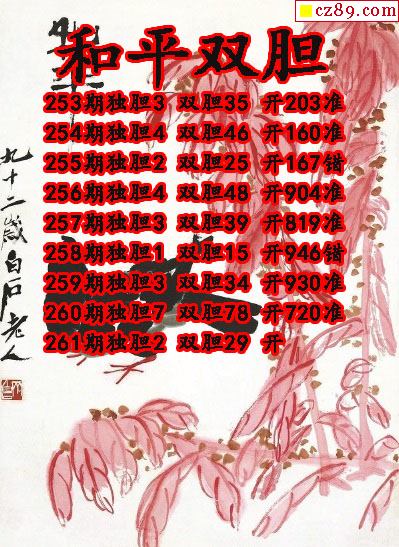 cz89.com
和平双胆
253期独胆3 双胆35 开203准
254期独胆4 双胆46 开160准
255期独胆2 双胆25 开167错
256期独胆4 双胆48 开904准
257期独胆3 双胆39 开819准
258期独胆1 双胆15 开946错
259期独胆3 双胆34 开930准
260期独胆7 双胆78 开720准
261期独胆2 双胆29 开
九十二岁白石老人